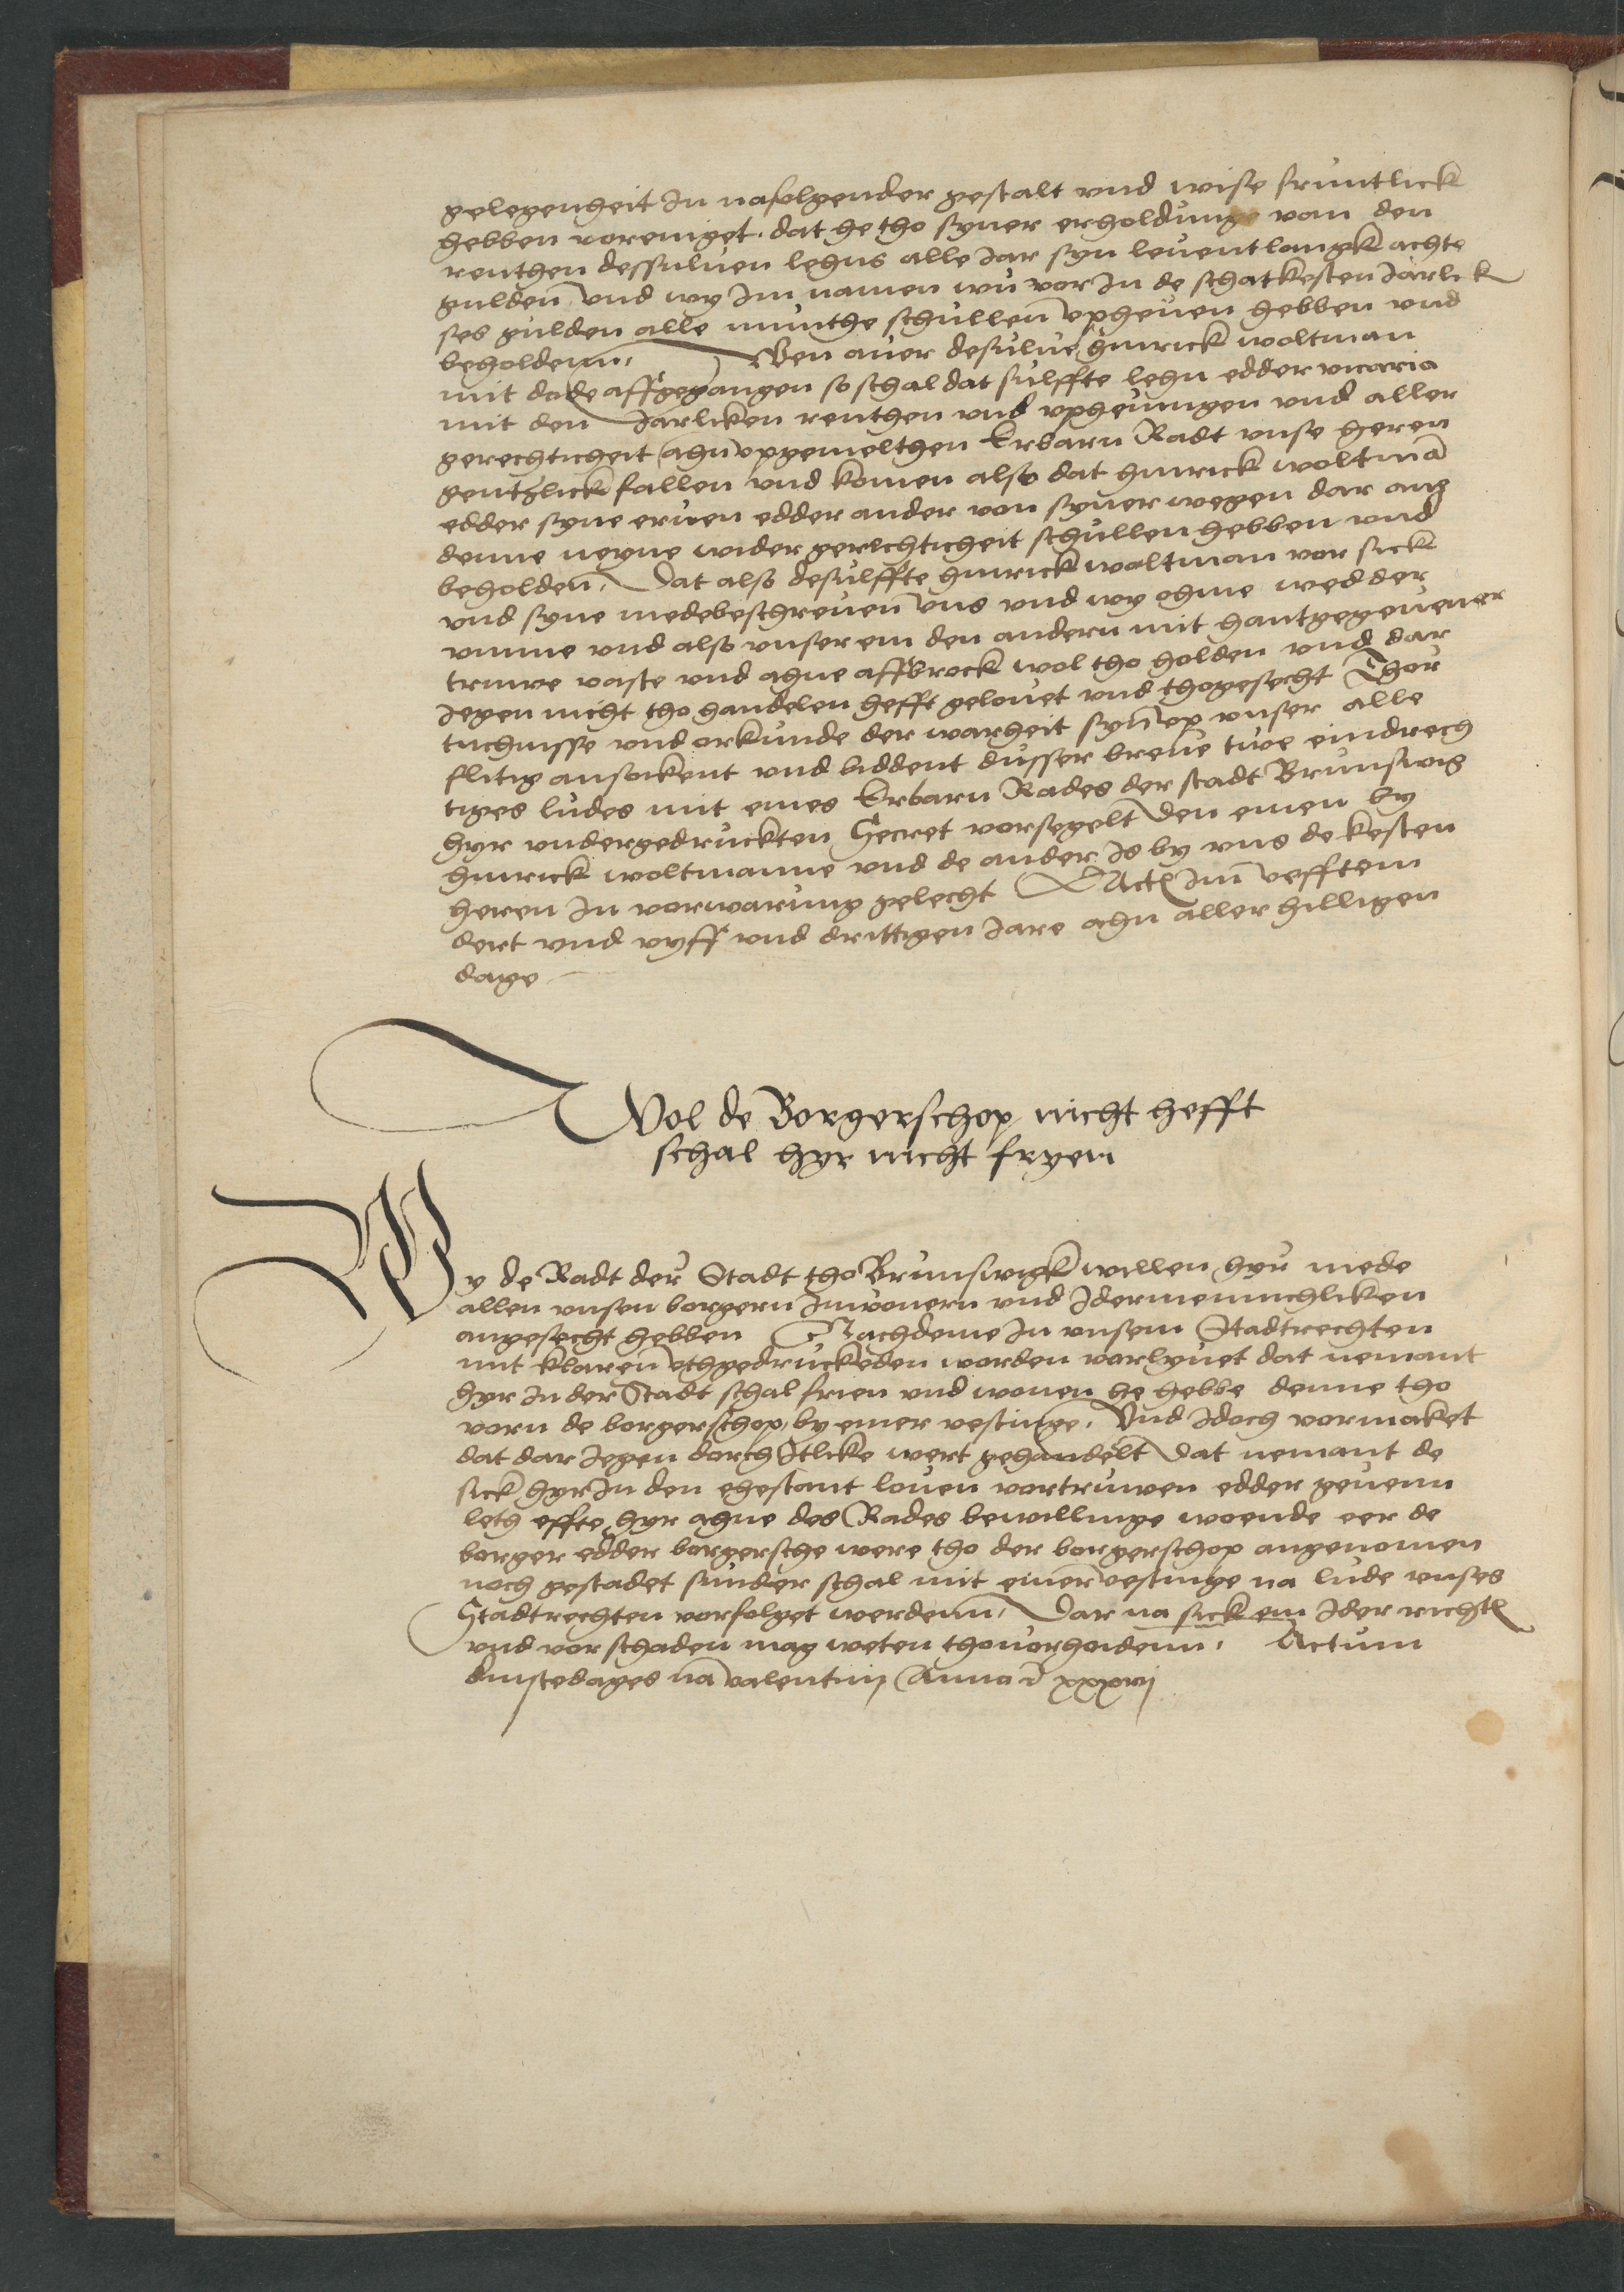 gelegenheit In nafolgender gestalt vnd wise fruntlick
hebben voreniget. dat he tho syner erholdunge van den
renthen dessuluen lehns alle Jar syn leuentlangk achte
gulden vnd wy Im namen wu vor In de schatkesten Jarlick
ses gulden alle munthe schullen vpheuen hebben vnd
beholdenn. Wen auer desulue hinrick woltman
mit dode affgegangen so schal dat sulffte lehn edder vicaria
mit den Jarliken renthen vnd vpheuingen vnd aller
gerechticheit ahn vpgemelthen Erbarn Radt vnse heren
gentzlick fallen vnd komen also dat hinrick woltmā
edder syne eruen edder ander von syner wegen dar an
denne neyne wider gerechticheit schullen hebben vnd
beholden. Dat also desulffte hinrick woltman vor sick
vnd syne medebeschreuen vns vnd wy ohme wedder
vmme vnd also vnser ein den andern mit hantgegeuener
truwe vaste vnd ahne affbrock wol tho holden vnd dar
Jegen nicht tho handelen hefft gelouet vnd thogesecht Thor
tuchnisse vnd orkunde der warheit syn vp vnser alle
flitig ansokent vnd biddent dusser breue twe eindrech
tiges ludes mit eines Erbarn Rades der stadt Brunswig
hyr vndergedruckten Secret vorsegelt den einen by
hinrick woltmanne vnd de ander Is by vns de kesten
heren In vorwarung gelecht Act Im vefftem
dert vnd vyff vnd druttigen Jare ahn aller hilligen
dage
Wol de Borgerschop nicht hefft
schal hyr nicht fryen
Wy de Radt der Stadt tho Brunswigk willen hyr mede
allen vnsen borgern Inwonern vnd Idermennichliken
angesecht hebben Nachdeme In vnsem Stadtrechten
mit klaren vthgedruckeden worden vorlyuet dat nemant
hyr In der Stadt schal frien vnd wonen he hebbe denne tho
vorn de borgerschop by einer vestinge. Vnd Idoch vormaket
dat dar Jegen dorch Itlike wert gehandelt Dat nemant de
sick hyr In den ehestant louen vortruwen edder geuenn
leth effte hyr ahne des Rades bewillinge woende eer de
borger edder borgersche were tho der borgerschop angenomen
noch gestadet sunder schal mit einer vestinge na lude vnses
Stadtrechten vorfolget werdenn. Dar na sick ein Ider richt
vnd vor schaden mag weten thouorhoidenn. Actum
dinstedages na valentinj Anno &c xxxvij